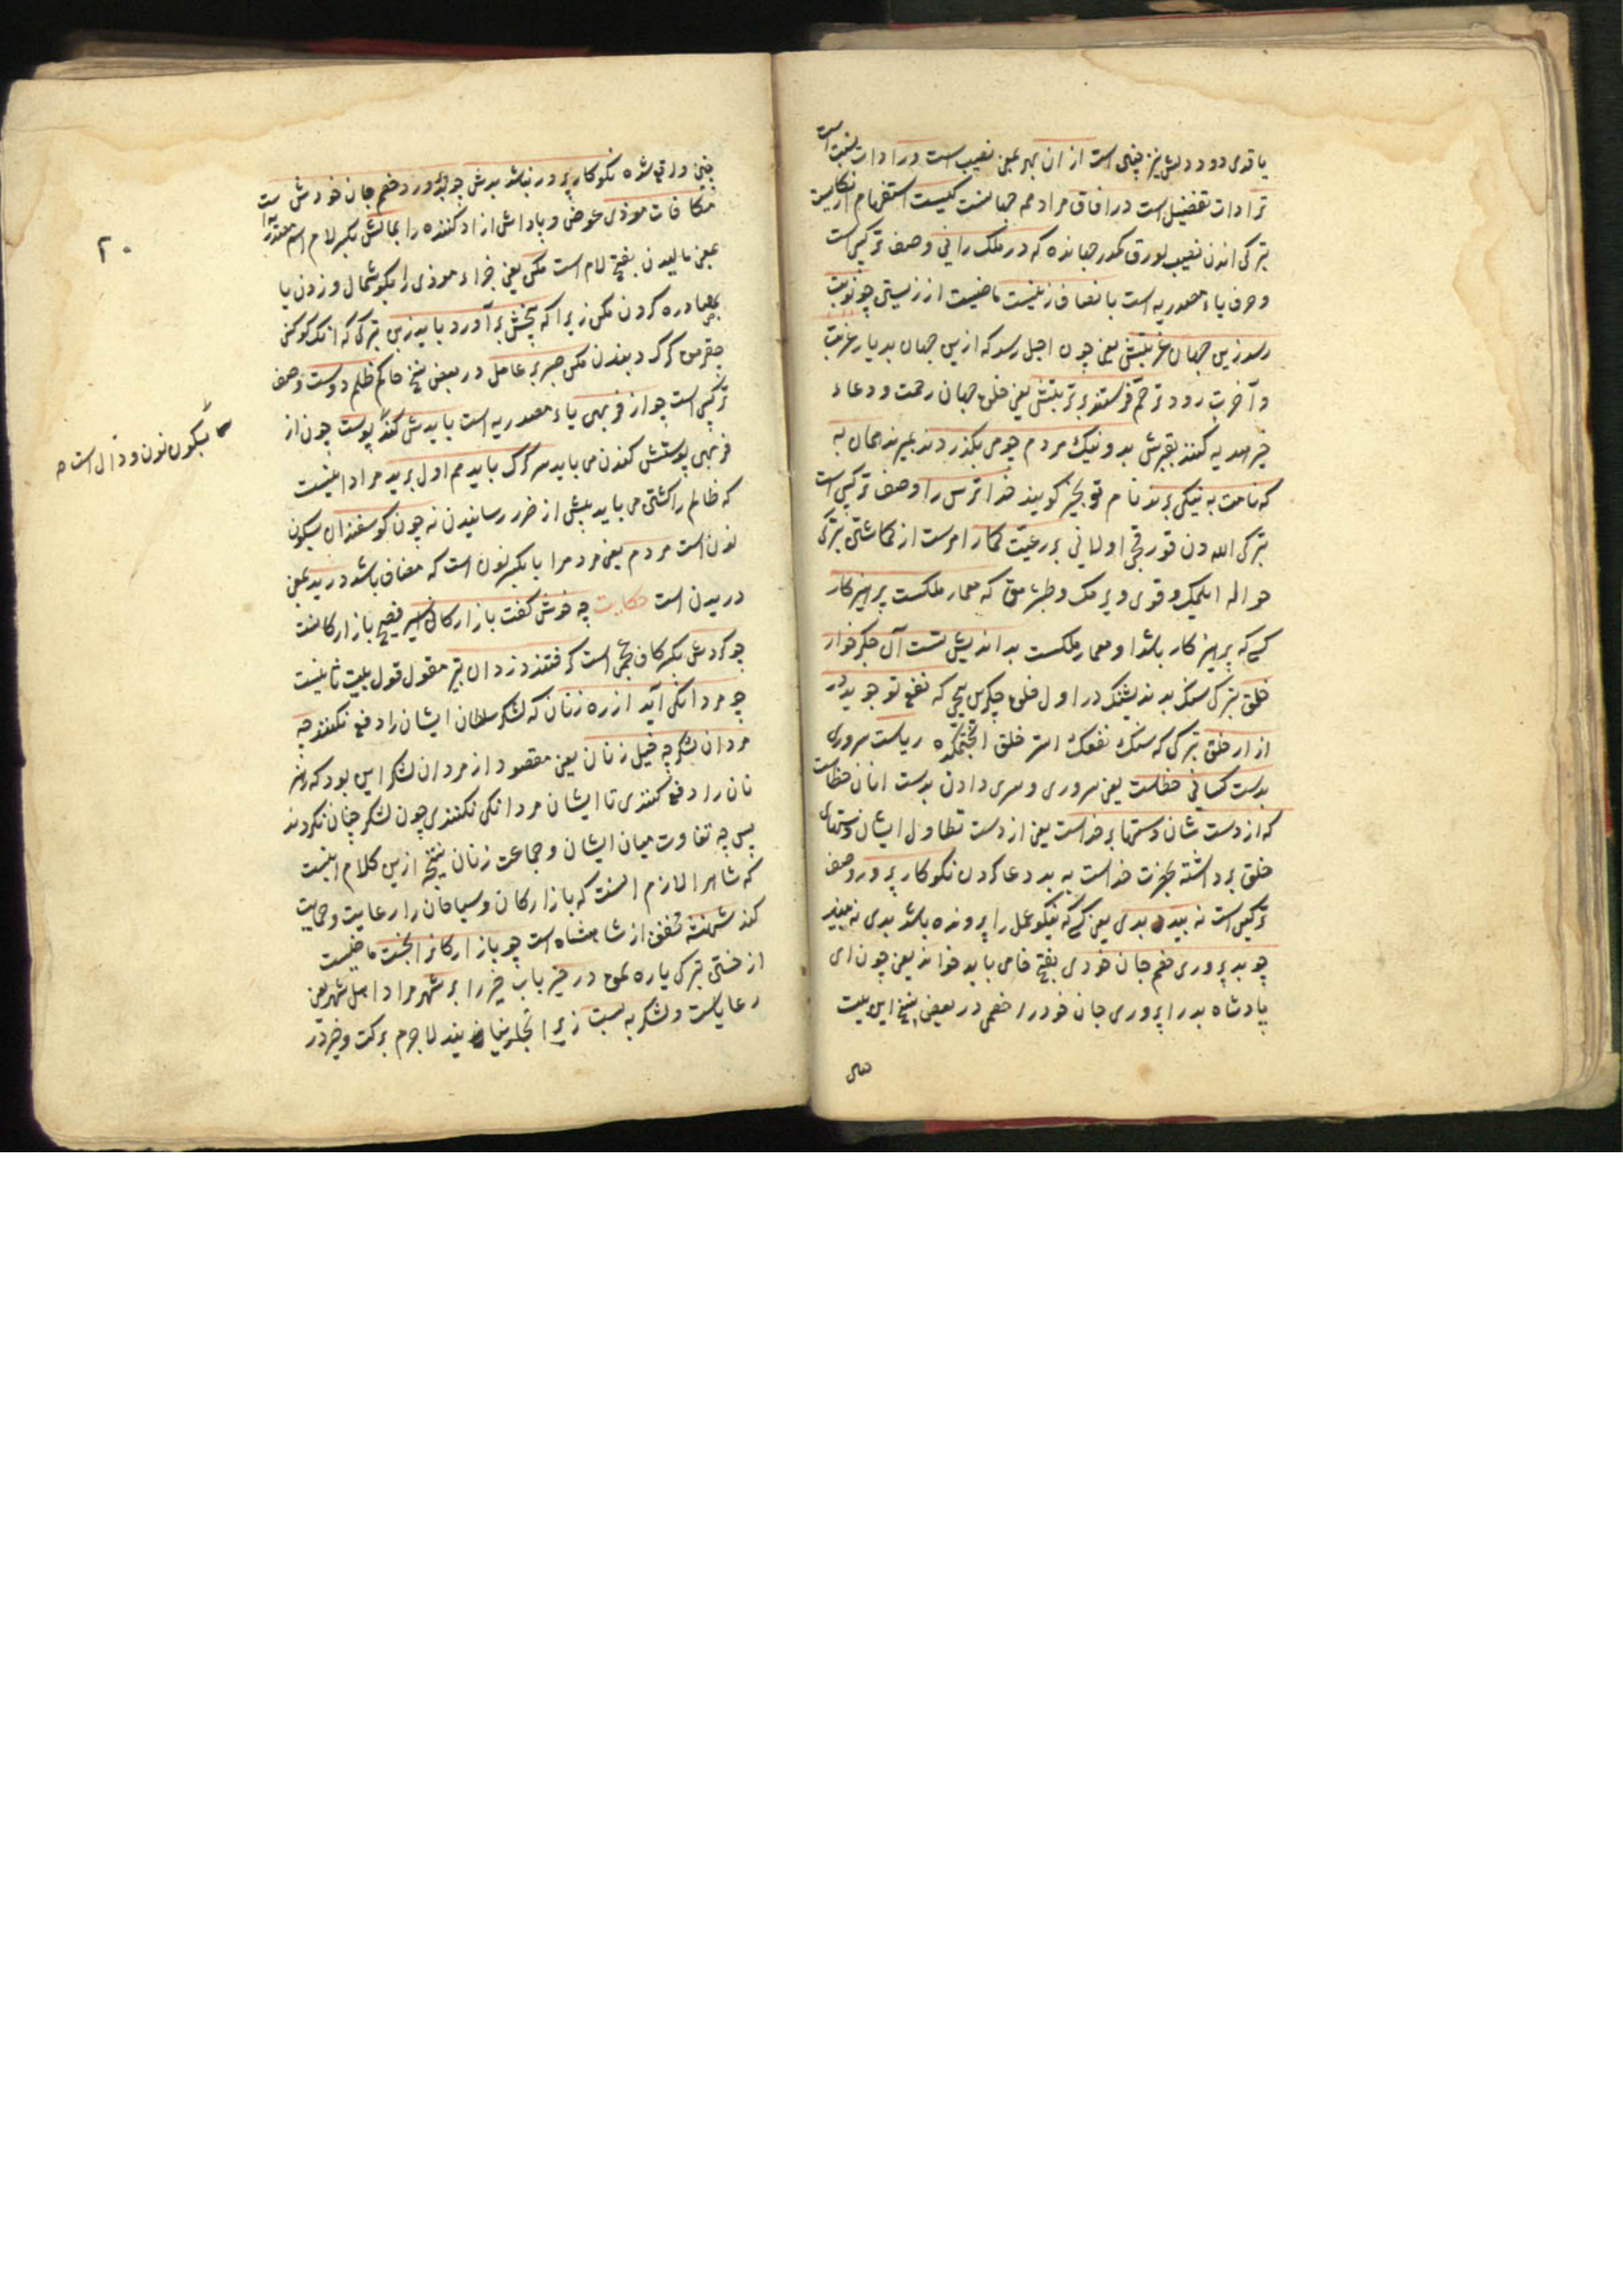 یا قدی دوود لش نیز چنین است از ان بهره بمعنی نصیب است ورا ادات نسبت است
ترا ادات تفضیل است در افاق مراد همه جهانست کیست استفهام انکاریست
بترکی اندن نصیب لورق مکدر جهانده که در ملک رانی وصف ترکیبی است
وحرف یاء مصدریه است بانصاف زیست ماضیست از زیستی چو نوبت
رسد زین جهان غربتش یعنی چون اجل رسد که ازین جهان بدیار غربت
و آخرت رود ترحم فرستند بر تربتش یعنی خلق جهان رحمت ودعاء
خیر هدیه کنند بقبرش بد ونیک مردم چو می بگذرد دند بمیرند همان به
که نامت به نیکی برند نام تو بخیر کویند خدا ترس را وصف ترکیبی است
بترکی الله دن قورقیجی اولانی بر رعیت کمار امرست از کماشتی بترکی
حواله ایلمک وقوی ویرمک که معمار ملکست پرهیزکار
کسی که پرهیزکار باشد او معمار ملکست بد اندیش تست آن جکرخوار
خلق بترکی سنک بد اندیشنک در اول خلق جکرین ییجی که نفع تو جوید در
ازار خلق بترکی که سنک نفعک استر خلق انجتمکده ریاست سروری
بدست کسانی خطاست یعنی سروری وسری دادن بدست انان خطاست
که از دست شان دستها بر خداست یعنی از دست تطاول ایشان دستهای
خلق برداشته بحضرت خداست به بد دعا کردن نکوکار پرور وصف
ترکیبی است نه بیند بدی یعنی کسی که نیکو عمل را پرونده باشد بدی نه بیند
چو بد پروری خصم جان خودی بفتح خا می باید خواند یعنی چون ای
پادشاه بد را پروری جان خود را خصمی در بعضی نسخ این بیت
۲۰
چنین واقع شده نکوکار پرور نباشد بدش چو بد پرورد خصم جان خودش است
مکافات موذی عوض وپاداش ازاد کننده را بمالش بکسر لام اسم مصدر است
بمعنی مالیدن بفتح لام است مکن یعنی جزاء موذی را بکوشمال وزدن یا
بمصادره کردن مکن زیرا که بیخش بر آورد باید زبن بترکی که انک کوکنی
چقرمق کرک دبندن مکن صبر بر عامل در بعضی نسخ حاکم ظلم دوست وصف
ترکیبی است چو از فربهی یاء مصدریه است بایدش کند پوست چون از
فربهی پوستش کندن می باید سر کرک باید هم اول برید مراد اینست
که ظالم را کشتی می باید پیش از ضرر رسانیدن نه چون کوسفندان بسکون
نون است مردم یعنی مردمرا یا بکسر نون است که مضاف باشد درید بمعنی
دریدن است حکایت چه خوش کفت بازارکانی اسیر فصیح بازارکانست
چو کردش بکسر کاف عجمی است کرفتند دزدان بتیر مقول قول بیت ثانیست
چو مردانکی آید از ره زنان که لشکر سلطان ایشان را دفع نکنند چه
مردان لشکر چه خیل زنان یعنی مقصود از مردان لشکر این بود که رهز
نان را دفع کنندی تا ایشان مردانکی نکنندی چون لشکر چنان نکردند
پس چه تفاوت میان ایشان وجماعت زنان نتیجه ازین کلام اینست
که شاهرا لازم انست که بازارکان وسیاحان را رعایت وحمایت
کند شهنشه مخفف از شاهنشاه است چو بازارکانرا بخست ماضیست
از خستی بترکی یاره لمق در خیر باب خیر را بر شهر مراد اهل شهر یعنی
رعایاست ولشکر به بست زیرا تجار نمی آیند لاجرم برکت وخیر در
بسکون نون ودال است